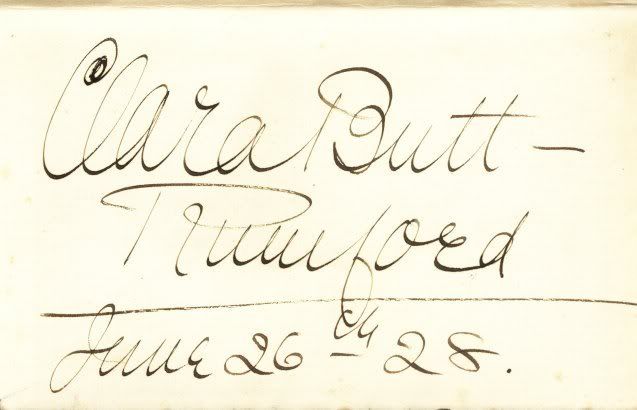 Clara Butt -
Rumford
June 26th 28.